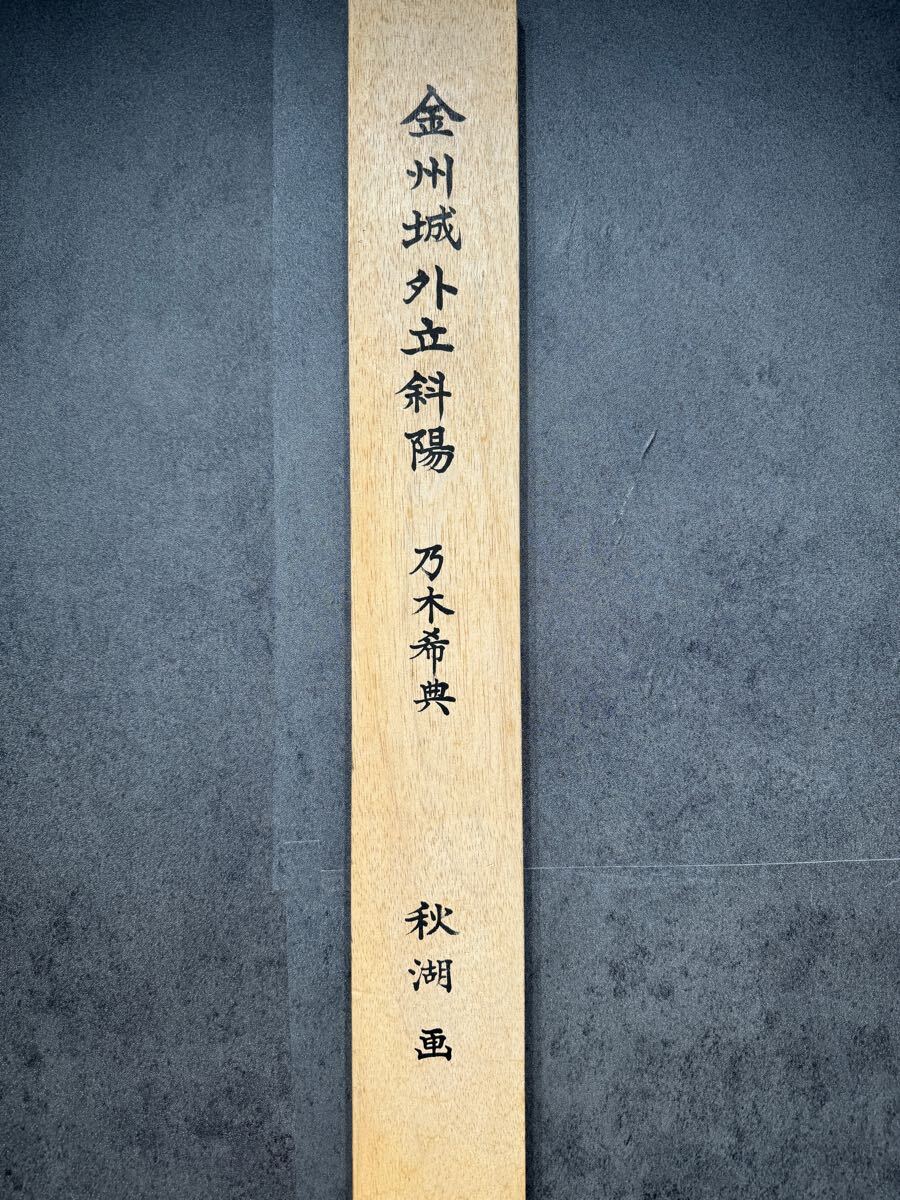 金州城外立斜陽 乃木希典 秋湖画